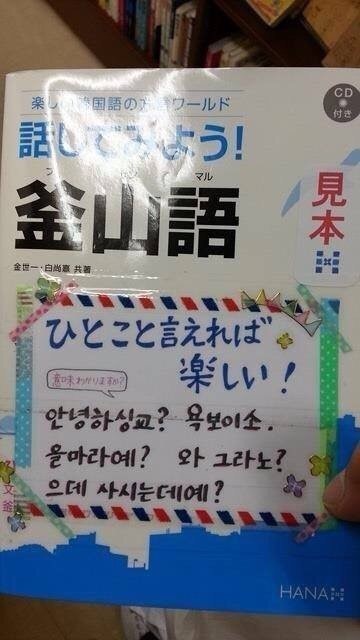 楽しい韓国語の方言ワールド
CD
付き
話してみよう！
プ サン マル
釜山語
見本
金世一・白尚憙 共著
ひとこと言えれば
楽しい！
意味わかりますか？
안녕하싱교? 욕보이소.
을마라예? 와 그라노?
으데 사시는데예?
文
釜
HANA